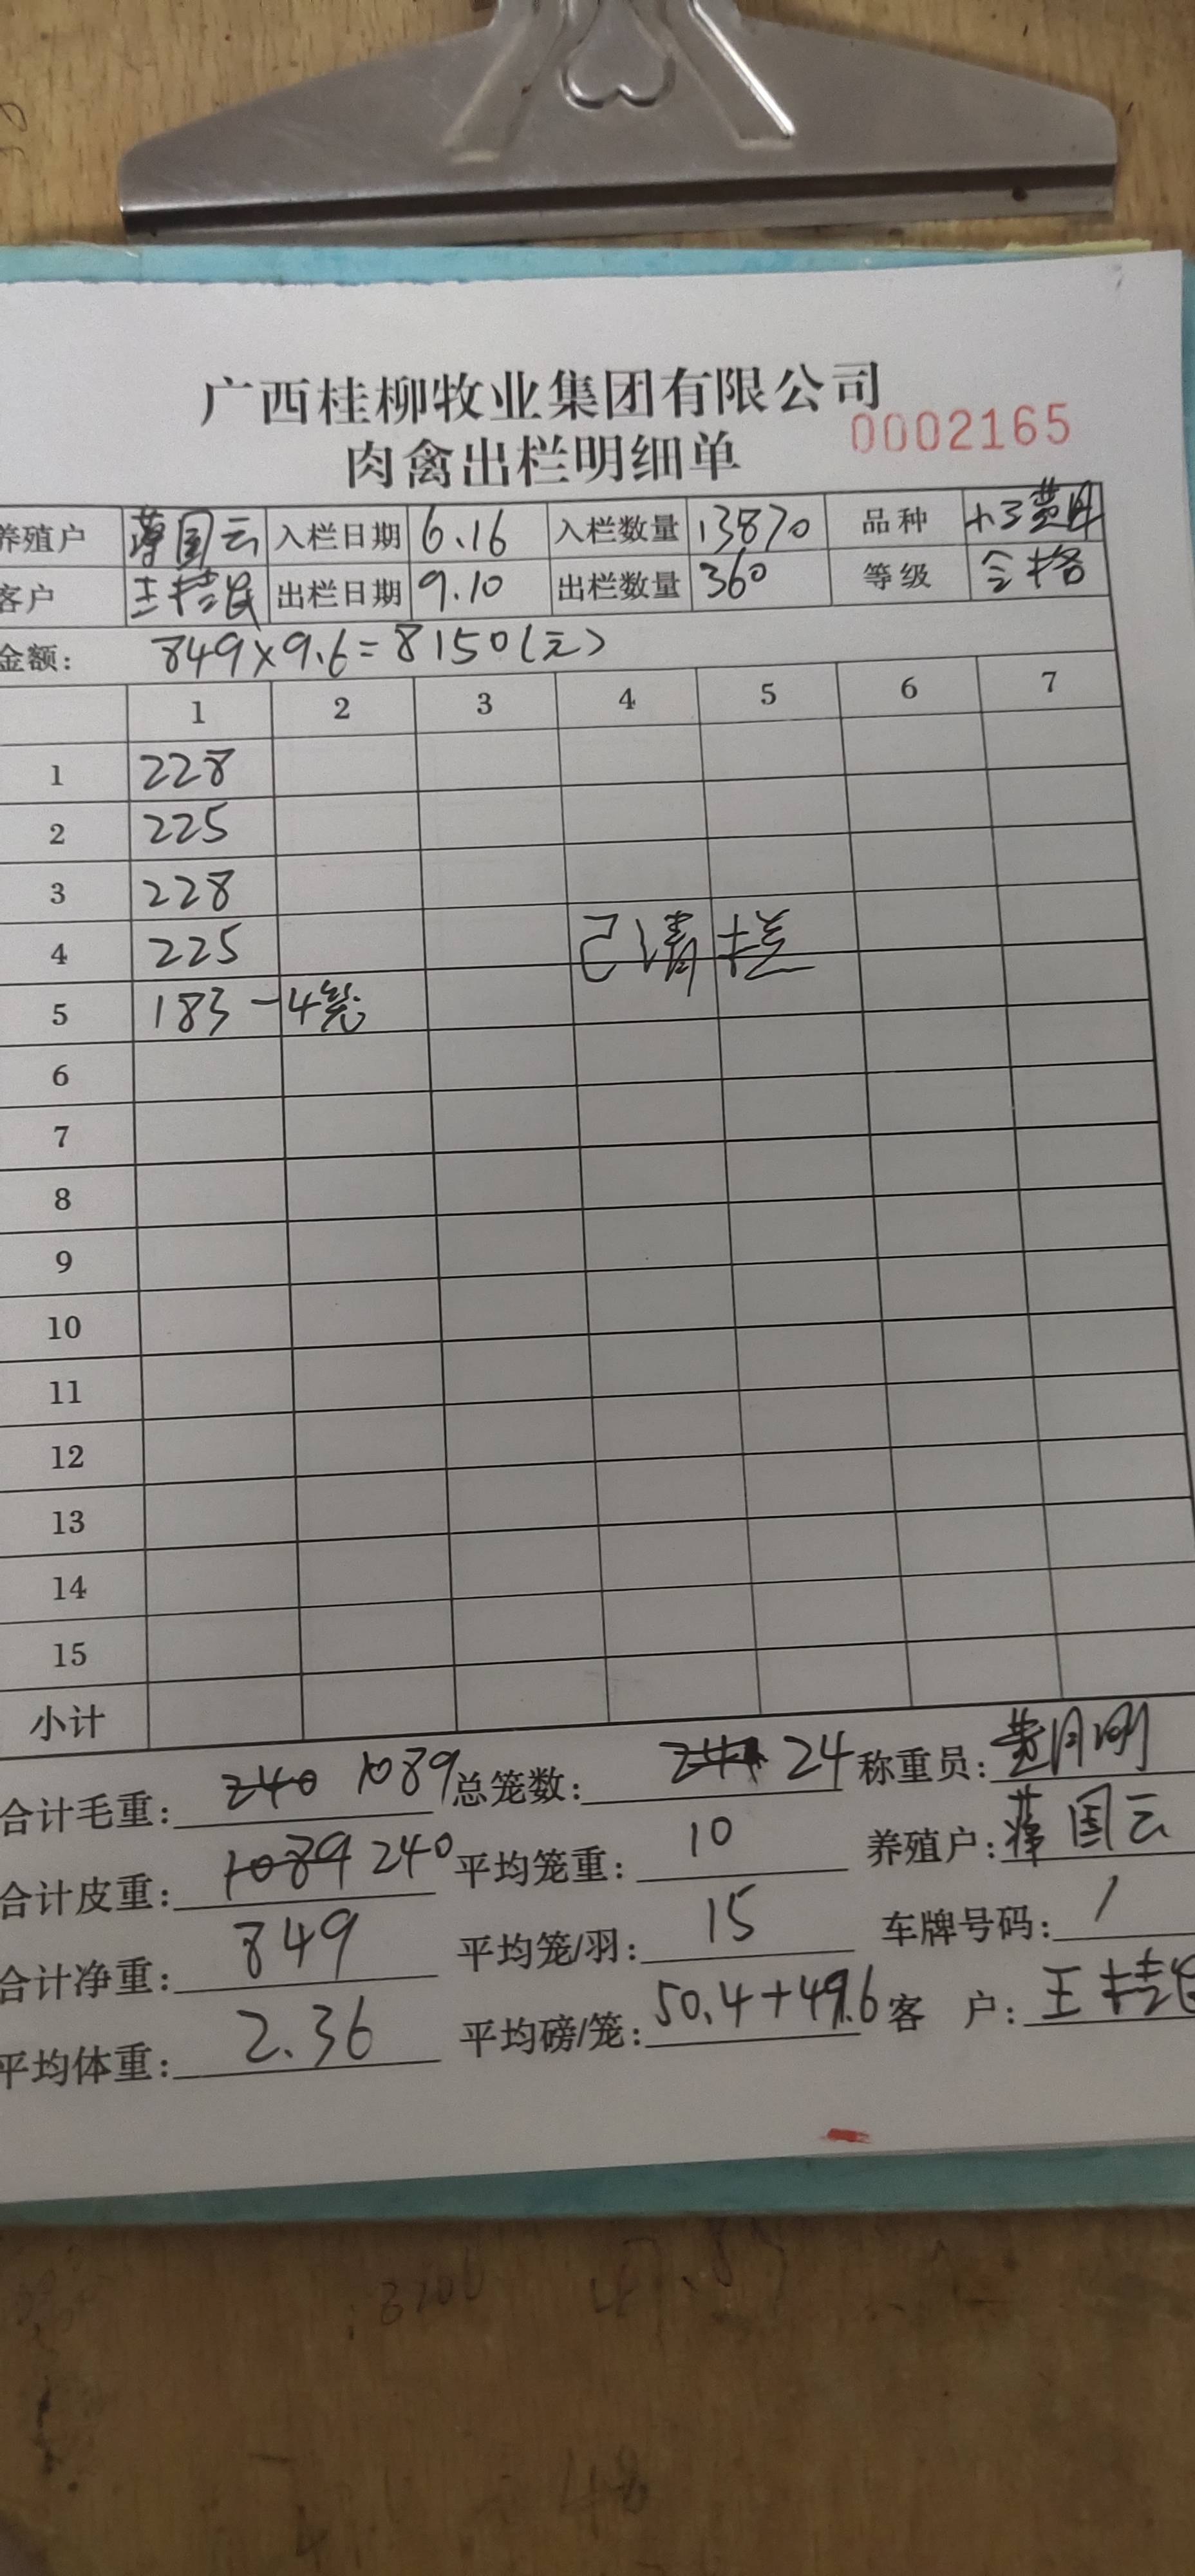 广西桂柳牧业集团有限公司
肉禽出栏明细单 0002165
养殖户 蒋国云 入栏日期 6.16 入栏数量 13870 品种
客户 出栏日期 9.10 出栏数量 360 等级 合格
金额: 849×9.6=8150(元)
1 2 3 4 5 6 7
1 228
2 225
3 228
4 225 已清栏
5 183-4笼
6
7
8
9
10
11
12
13
14
15
小计
合计毛重: 240 1089 总笼数: 24 称重员:
合计皮重: 1089 240 平均笼重: 10 养殖户: 蒋国云
合计净重: 849 平均笼/羽: 15 车牌号码: /
平均体重: 2.36 平均磅/笼: 50.4+49.6 客 户: 王